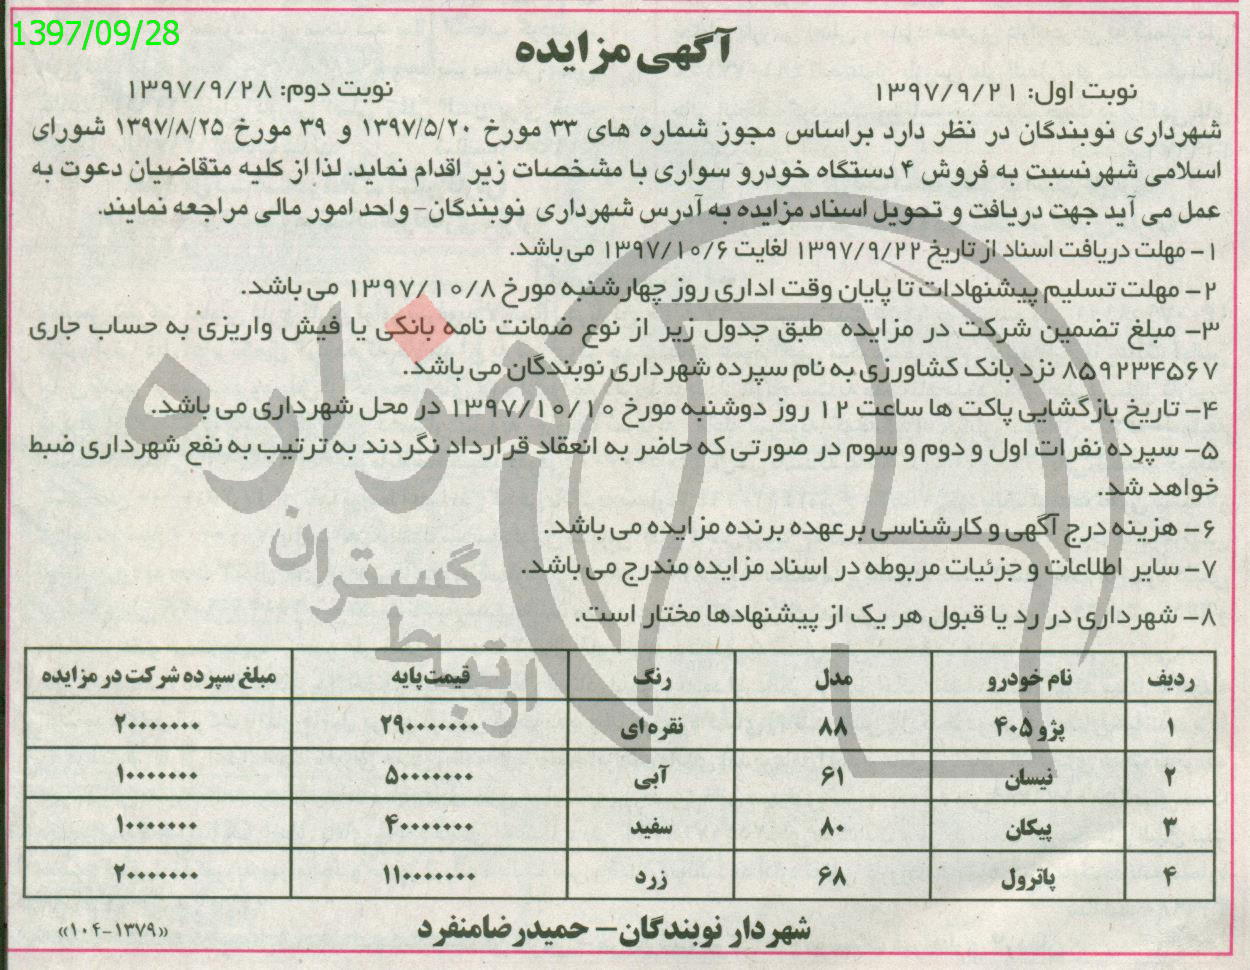 1397/09/28
آگهی مزایده
نوبت اول: ۱۳۹۷/۹/۲۱ نوبت دوم: ۱۳۹۷/۹/۲۸
شهرداری نوبندگان در نظر دارد براساس مجوز شماره های ۳۳ مورخ ۱۳۹۷/۵/۲۰ و ۳۹ مورخ ۱۳۹۷/۸/۲۵ شورای
اسلامی شهرنسبت به فروش ۴ دستگاه خودرو سواری با مشخصات زیر اقدام نماید. لذا از کلیه متقاضیان دعوت به
عمل می آید جهت دریافت و تحویل اسناد مزایده به آدرس شهرداری نوبندگان- واحد امور مالی مراجعه نمایند.
۱- مهلت دریافت اسناد از تاریخ ۱۳۹۷/۹/۲۲ لغایت ۱۳۹۷/۱۰/۶ می باشد.
۲- مهلت تسلیم پیشنهادات تا پایان وقت اداری روز چهارشنبه مورخ ۱۳۹۷/۱۰/۸ می باشد.
۳- مبلغ تضمین شرکت در مزایده طبق جدول زیر از نوع ضمانت نامه بانکی یا فیش واریزی به حساب جاری
۸۵۹۲۳۴۵۶۷ نزد بانک کشاورزی به نام سپرده شهرداری نوبندگان می باشد.
۴- تاریخ بازگشایی پاکت ها ساعت ۱۲ روز دوشنبه مورخ ۱۳۹۷/۱۰/۱۰ در محل شهرداری می باشد.
۵- سپرده نفرات اول و دوم و سوم در صورتی که حاضر به انعقاد قرارداد نگردند به ترتیب به نفع شهرداری ضبط
خواهد شد.
۶- هزینه درج آگهی و کارشناسی برعهده برنده مزایده می باشد.
۷- سایر اطلاعات و جزئیات مربوطه در اسناد مزایده مندرج می باشد.
۸- شهرداری در رد یا قبول هر یک از پیشنهادها مختار است.
ردیف نام خودرو مدل رنگ قیمت پایه مبلغ سپرده شرکت در مزایده
۱ پژو ۴۰۵ ۸۸ نقره‌ای ۲۹۰۰۰۰۰۰۰ ۲۰۰۰۰۰۰۰
۲ نیسان ۶۱ آبی ۵۰۰۰۰۰۰۰ ۱۰۰۰۰۰۰۰
۳ پیکان ۸۰ سفید ۴۰۰۰۰۰۰۰ ۱۰۰۰۰۰۰۰
۴ پاترول ۶۸ زرد ۱۱۰۰۰۰۰۰۰ ۲۰۰۰۰۰۰۰
شهردار نوبندگان- حمیدرضا منفرد
«۱۰۴-۱۳۷۹»
هزاره
گستران
ارتباط